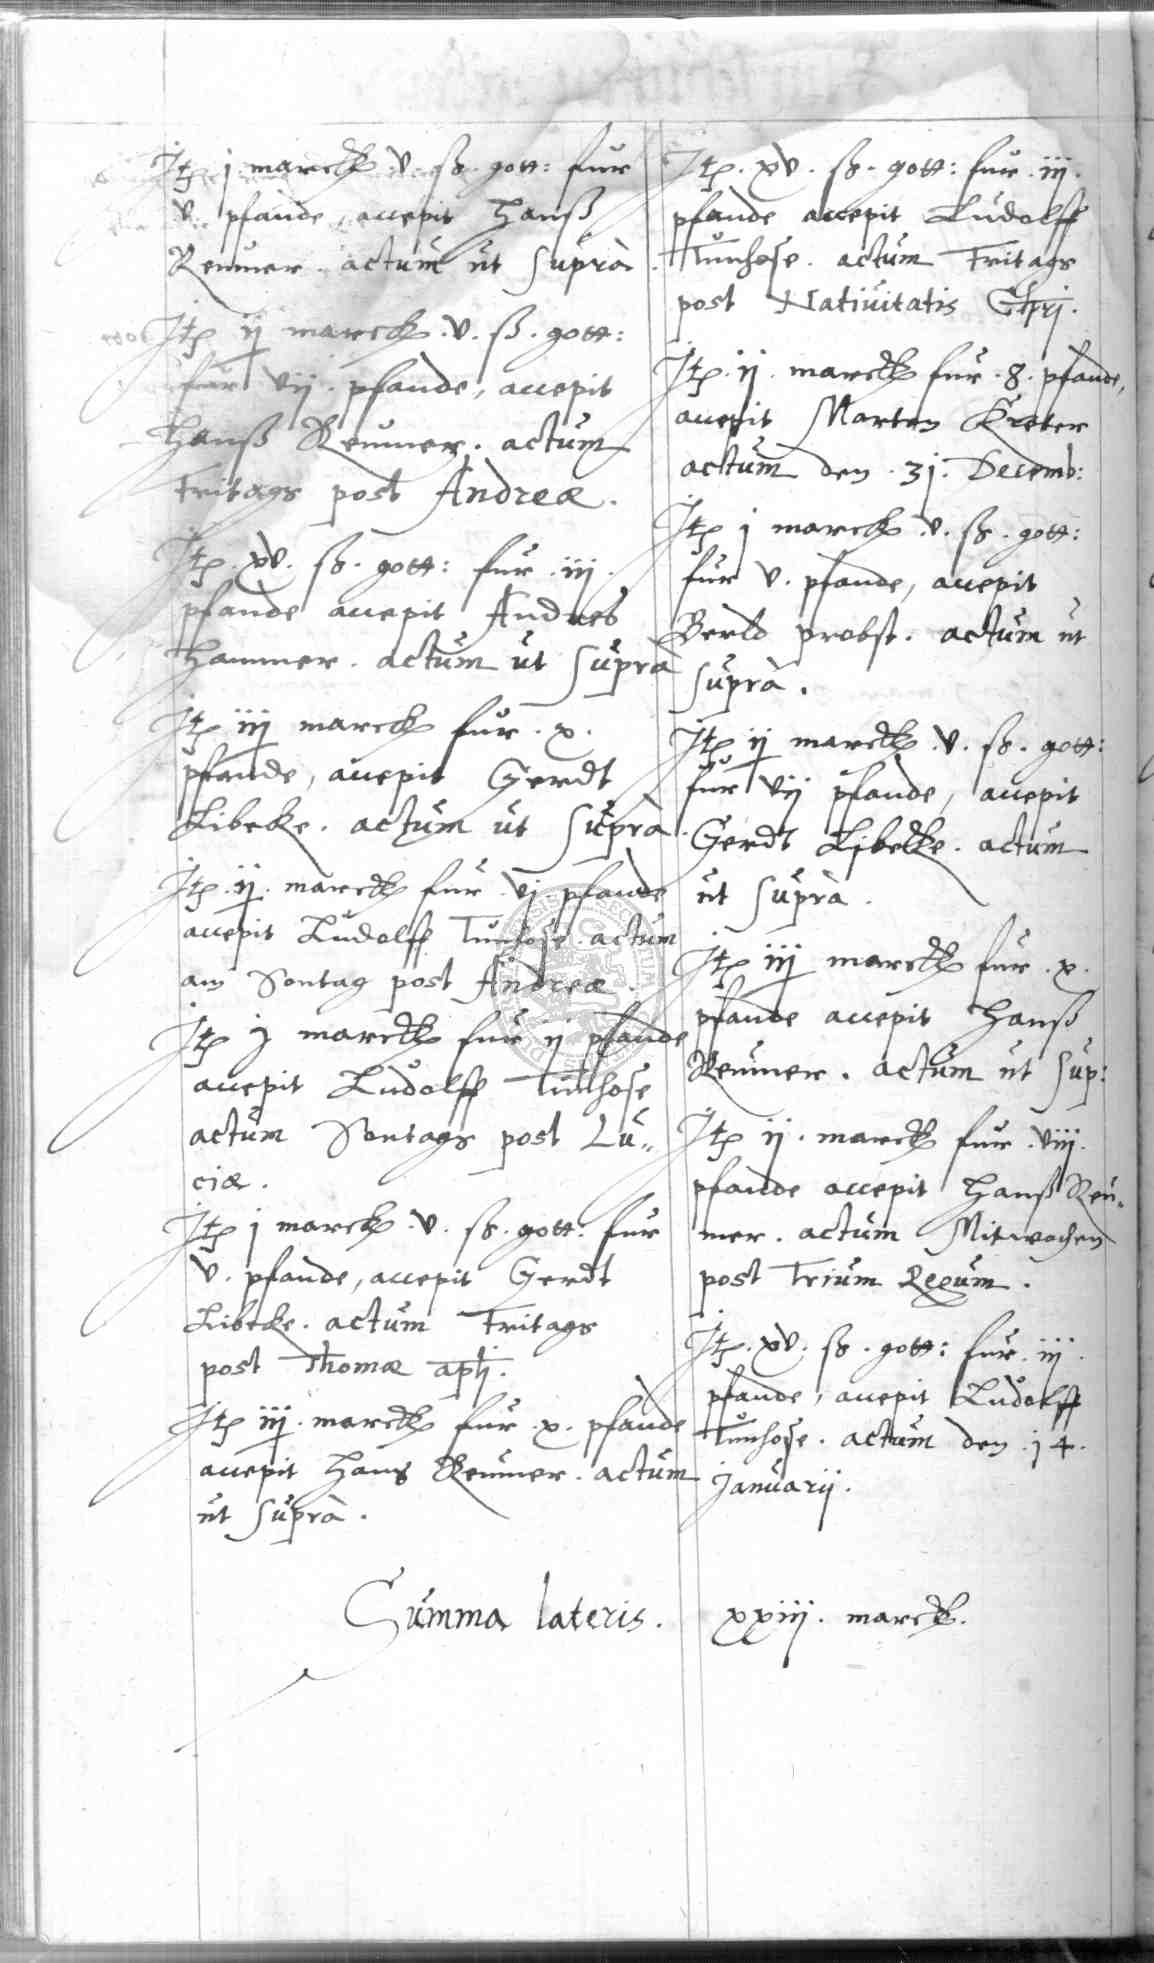 Itē j marck v. ß. gott: fur
v. pfande, accepit Hanß
Reumer. actum ut suprà.
Itē ij marck .v. ß. gott:
fur vij. pfande, accepit
Hanß Reumer. actum
Fritags post Andreæ.
Itē. xv. ß. gott: fur .iij.
pfande accepit Andres
Hammer. actum ut suprà
Itē iij marck fur .x.
pfande, accepit Gerdt
Libecke. actum ut suprà.
Itē .ij. marck fur .vj. pfande
accepit Ludolff Tunhose. actum
am Sontag post Andreæ.
Itē j marck fur ij pfande
accepit Ludolff Tunhose
actum Sontags post Lu„
ciæ.
Itē j marck .v. ß. gott: fur
v. pfande, accepit Gerdt
Libecke. actum Fritags
post Thomæ aptj.
Itē iij. marck fur .x. pfande
accepit Hans Reumer. actum
ut suprà.
Itē. xv. ß. gott: fur .iij.
pfande accepit Ludolff
Tunhose. actum Fritags
post Natiuitatis Chrj.
Itē .ij. marck fur .8. pfande,
accepit Marten Kreter
actum den .31. Decemb:
Itē j marck .v. ß. gott:
fur v. pfande, accepit
Berld probst. actum ut
suprà.
Itē ij marck .v. ß. gott:
fur vij pfande, accepit
Gerdt Libecke. actum
ut suprà.
Itē iij marck fur .x.
pfande accepit Hanß
Reumer. actum ut sup:
Itē ij. marck fur .viij.
pfande accepit Hanß Reu„
mer. actum Mitwochen
post Trium Regum.
Itē. xv. ß. gott: fur .iij.
pfande, accepit Ludolff
Tunhose. actum den .14.
Januarij.
Summa lateris. xxiij. marck.